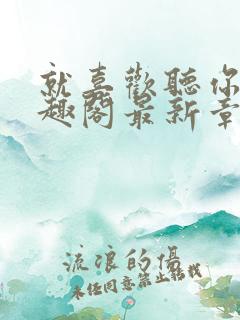 就喜歡聽你
趣閣最新章
流浪的傷
未經同意禁止轉載